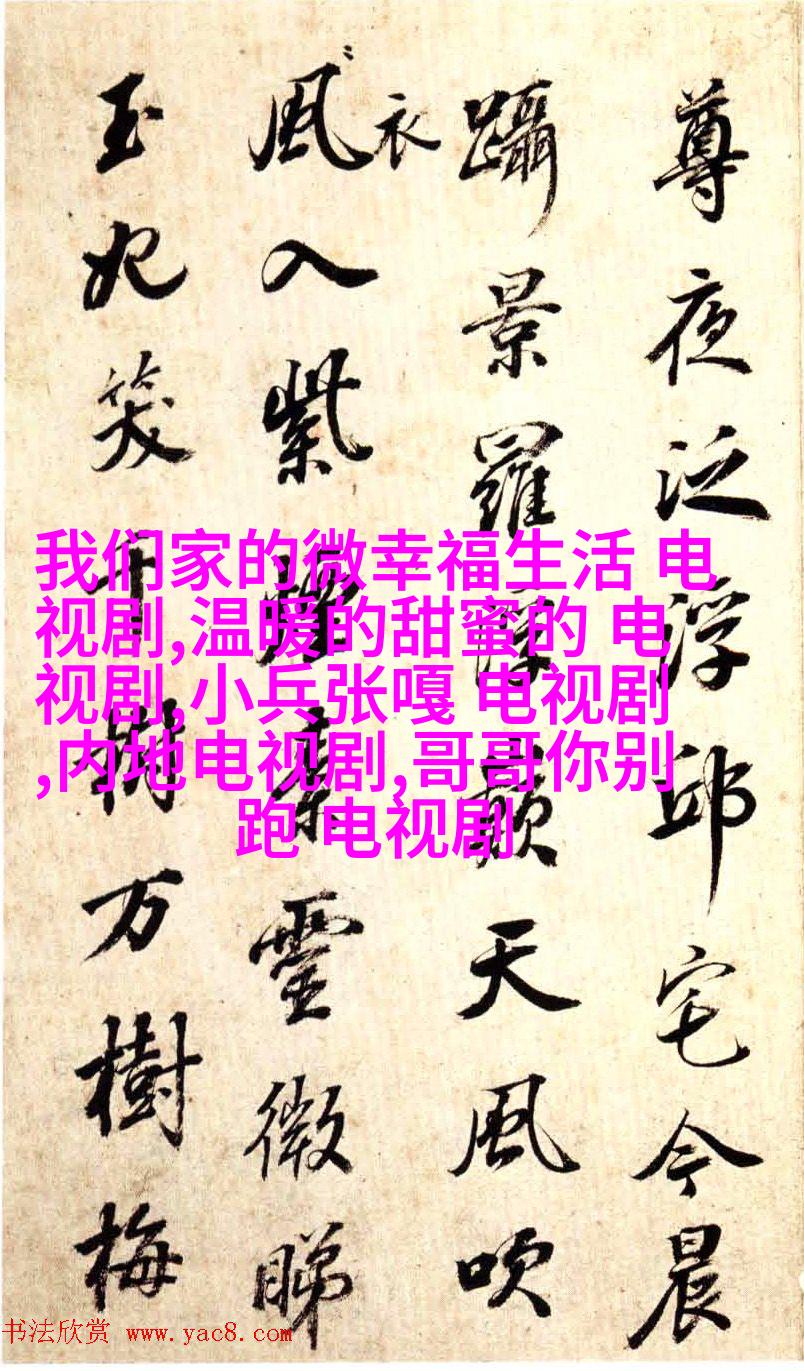 尊夜泛浮邱宅今晨
躡景羅天風吹
衣
風入紫素靈微睇
玉妃笑千樹万樹梅
我们家的微幸福生活 电
视剧,温暖的甜蜜的 电
视剧,小兵张嘎 电视剧
,内地电视剧,哥哥你别
跑 电视剧
书法欣赏 www.yac8.com